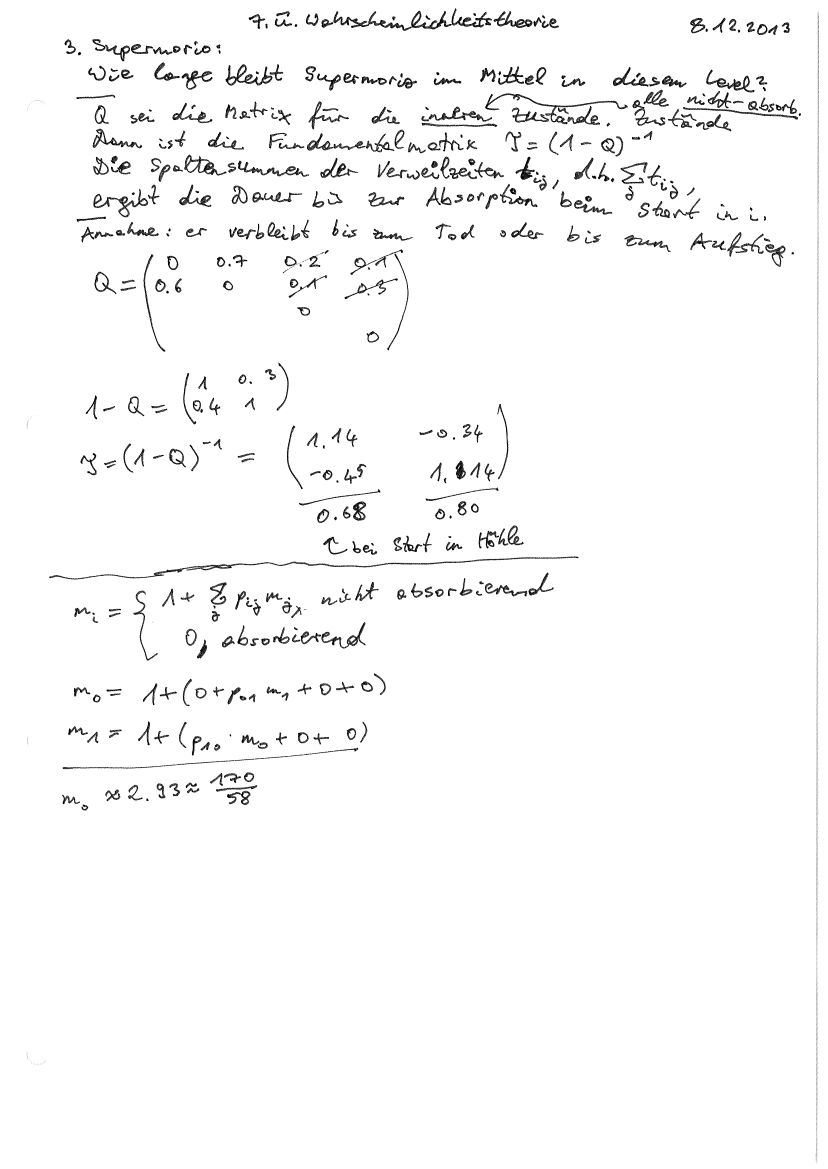 7. Ü. Wahrscheinlichkeitstheorie 8.12.2013
3. Supermorio:
Wie lange bleibt Supermorio im Mittel in diesem Level?
alle nicht-absorb. Zustände
Q sei die Matrix für die inneren Zustände.
Dann ist die Fundamentalmatrix T = (1 - Q)^-1
Die Spaltensummen der Verweilzeiten t_ij, d.h. Σ_j t_ij,
ergibt die Dauer bis zur Absorption beim Start in i.
Annahme: er verbleibt bis zum Tod oder bis zum Aufstieg.
Q = ( 0 0.7 0.2 0.1
0.6 0 0.1 0.3
0
0 )
1 - Q = ( 1 0.3
0.4 1 )
T = (1 - Q)^-1 = ( 1.14 -0.34
-0.45 1.14 )
0.68 0.80
↑ bei Start in Höhle
m_i = { 1 + Σ_j p_ij m_j, nicht absorbierend
0, absorbierend
m_0 = 1 + (0 + p_01 m_1 + 0 + 0)
m_1 = 1 + (p_10 · m_0 + 0 + 0)
m_0 ≈ 2.93 ≈ 170/58